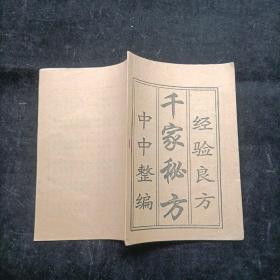 经验良方
千家秘方
中中整编